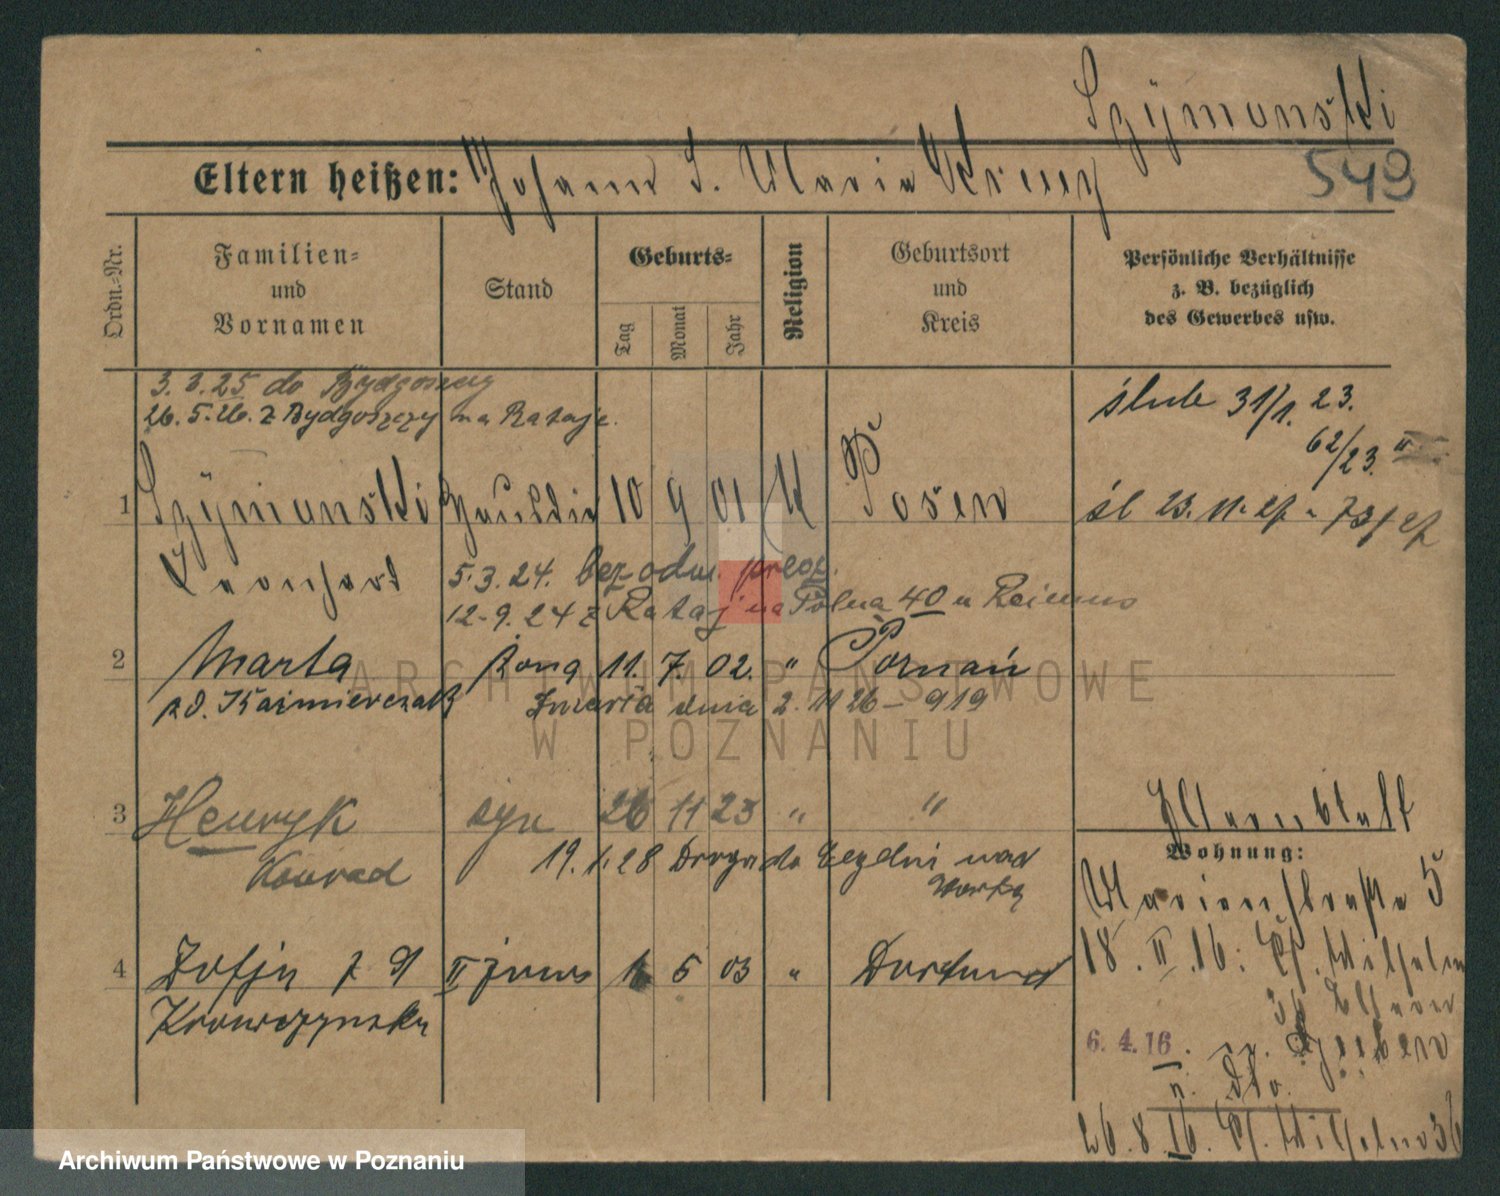 Szymanski
Eltern heißen: Johann u. Maria Kreuz
549
Ordn.=Nr.
Familien=
und
Vornamen
Stand
Geburts=
Tag
Monat
Jahr
Religion
Geburtsort
und
Kreis
Persönliche Verhältnisse
z. B. bezüglich
des Gewerbes usw.
3. 3. 25 do Bydgoszczy
26. 5. 26. z Bydgoszczy na Rataje.
ślub 31/1. 23.
62/23. II
1 Szymanski 10 9 01 K Posen
śl 23. 11. 27 - 737/27
Leonhard
5.3.24. bez odm. przep.
12.9.24 z Rataj na Polna 40 u
2 Marta żona 11. 7. 02. " Poznań
zd. Kaźmierczak
Zmarła dnia 2. 11 26 - 919
3 Henryk syn 26 11 23 " "
Konrad
19. 1. 28 Drogą do
4 Zofja z d II żona 1 5 03 " Dortmund
Krawczyńska
Elternblatt
Wohnung:
Marienstraße 5
18. II. 16: Wilhelm
36 Eltern
6. 4. 16.
n. dto.
26. 8. 16. Wilhelm 36
ARCHIWUM PAŃSTWOWE
W POZNANIU
Archiwum Państwowe w Poznaniu